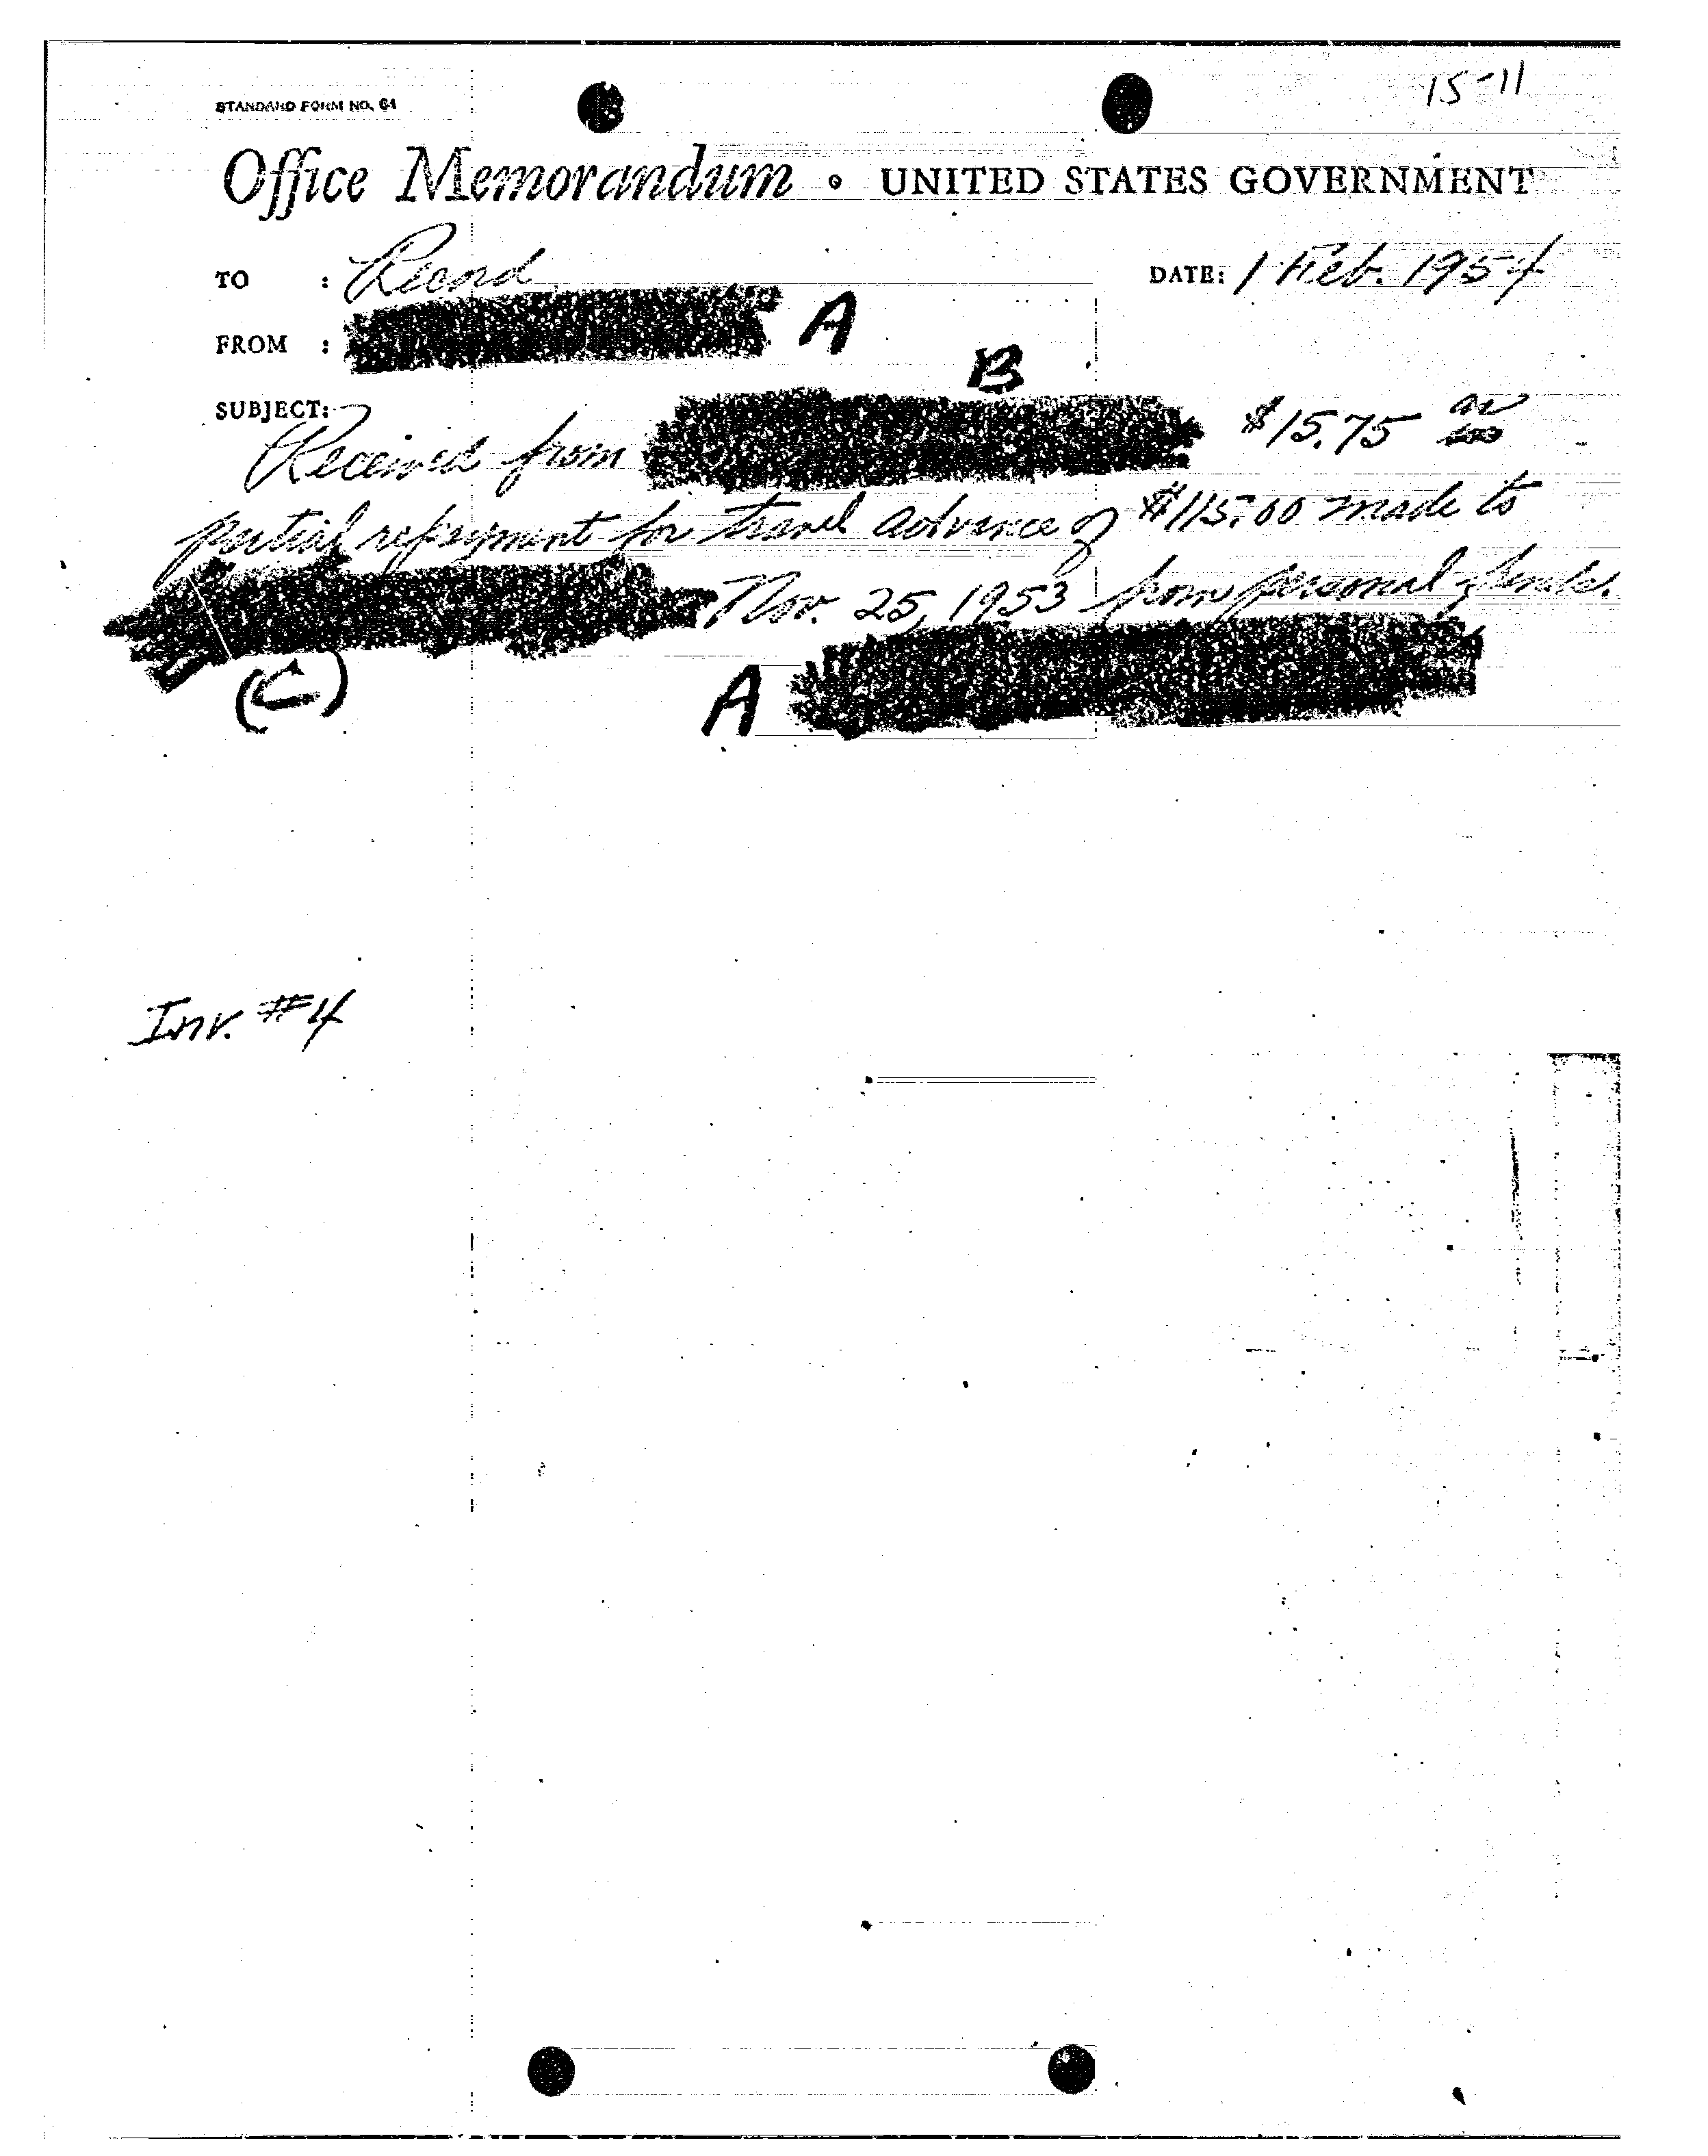 15-11
STANDARD FORM NO. 64
Office Memorandum • UNITED STATES GOVERNMENT
TO : Record DATE: 1 Feb. 1954
FROM : A
B
SUBJECT:
Received from $15.75 as
partial repayment for travel advance of $115.00 made to
Nov. 25, 1953 from personal funds.
(C) A
Inv. #4